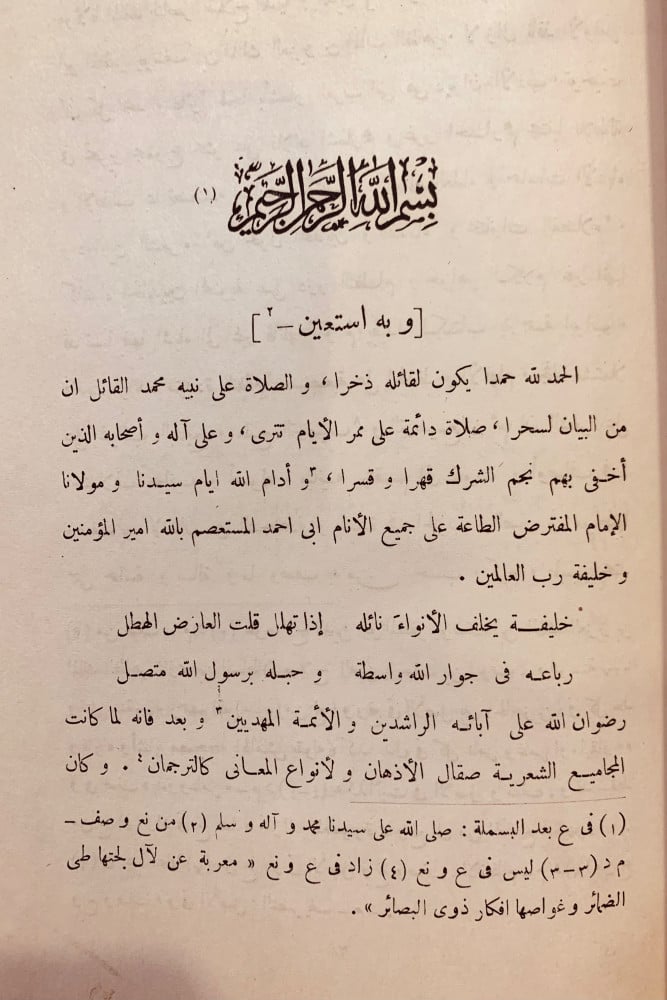 بسم الله الرحمن الرحيم (١)
[و به استعين -٢]
الحمد لله حمدا يكون لقائله ذخرا، و الصلاة على نبيه محمد القائل ان
من البيان لسحرا، صلاة دائمة على ممر الأيام تترى، و على آله و أصحابه الذين
أخفى بهم نجم الشرك قهرا و قسرا، ٣و أدام الله ايام سيدنا و مولانا
الإمام المفترض الطاعة على جميع الأنام ابى احمد المستعصم بالله امير المؤمنين
و خليفة رب العالمين .
خليفة يخلف الأنواءَ نائله إذا تهلل قلت العارض الهطل
رباعه فى جوار الله واسطة و حبله برسول الله متصل
رضوان الله على آبائه الراشدين و الأئمة المهديين٣ و بعد فانه لما كانت
المجاميع الشعرية صقال الأذهان و لأنواع المعانى كالترجمان٤ . و كان
(١) فى ع بعد البسملة : صلى الله على سيدنا محمد و آله و سلم (٢) من نع و صف -
م د (٣-٣) ليس فى ع و نع (٤) زاد فى ع و نع « معربة عن لآل لجتها طى
الضمائر و غواصها افكار ذوى البصائر » .